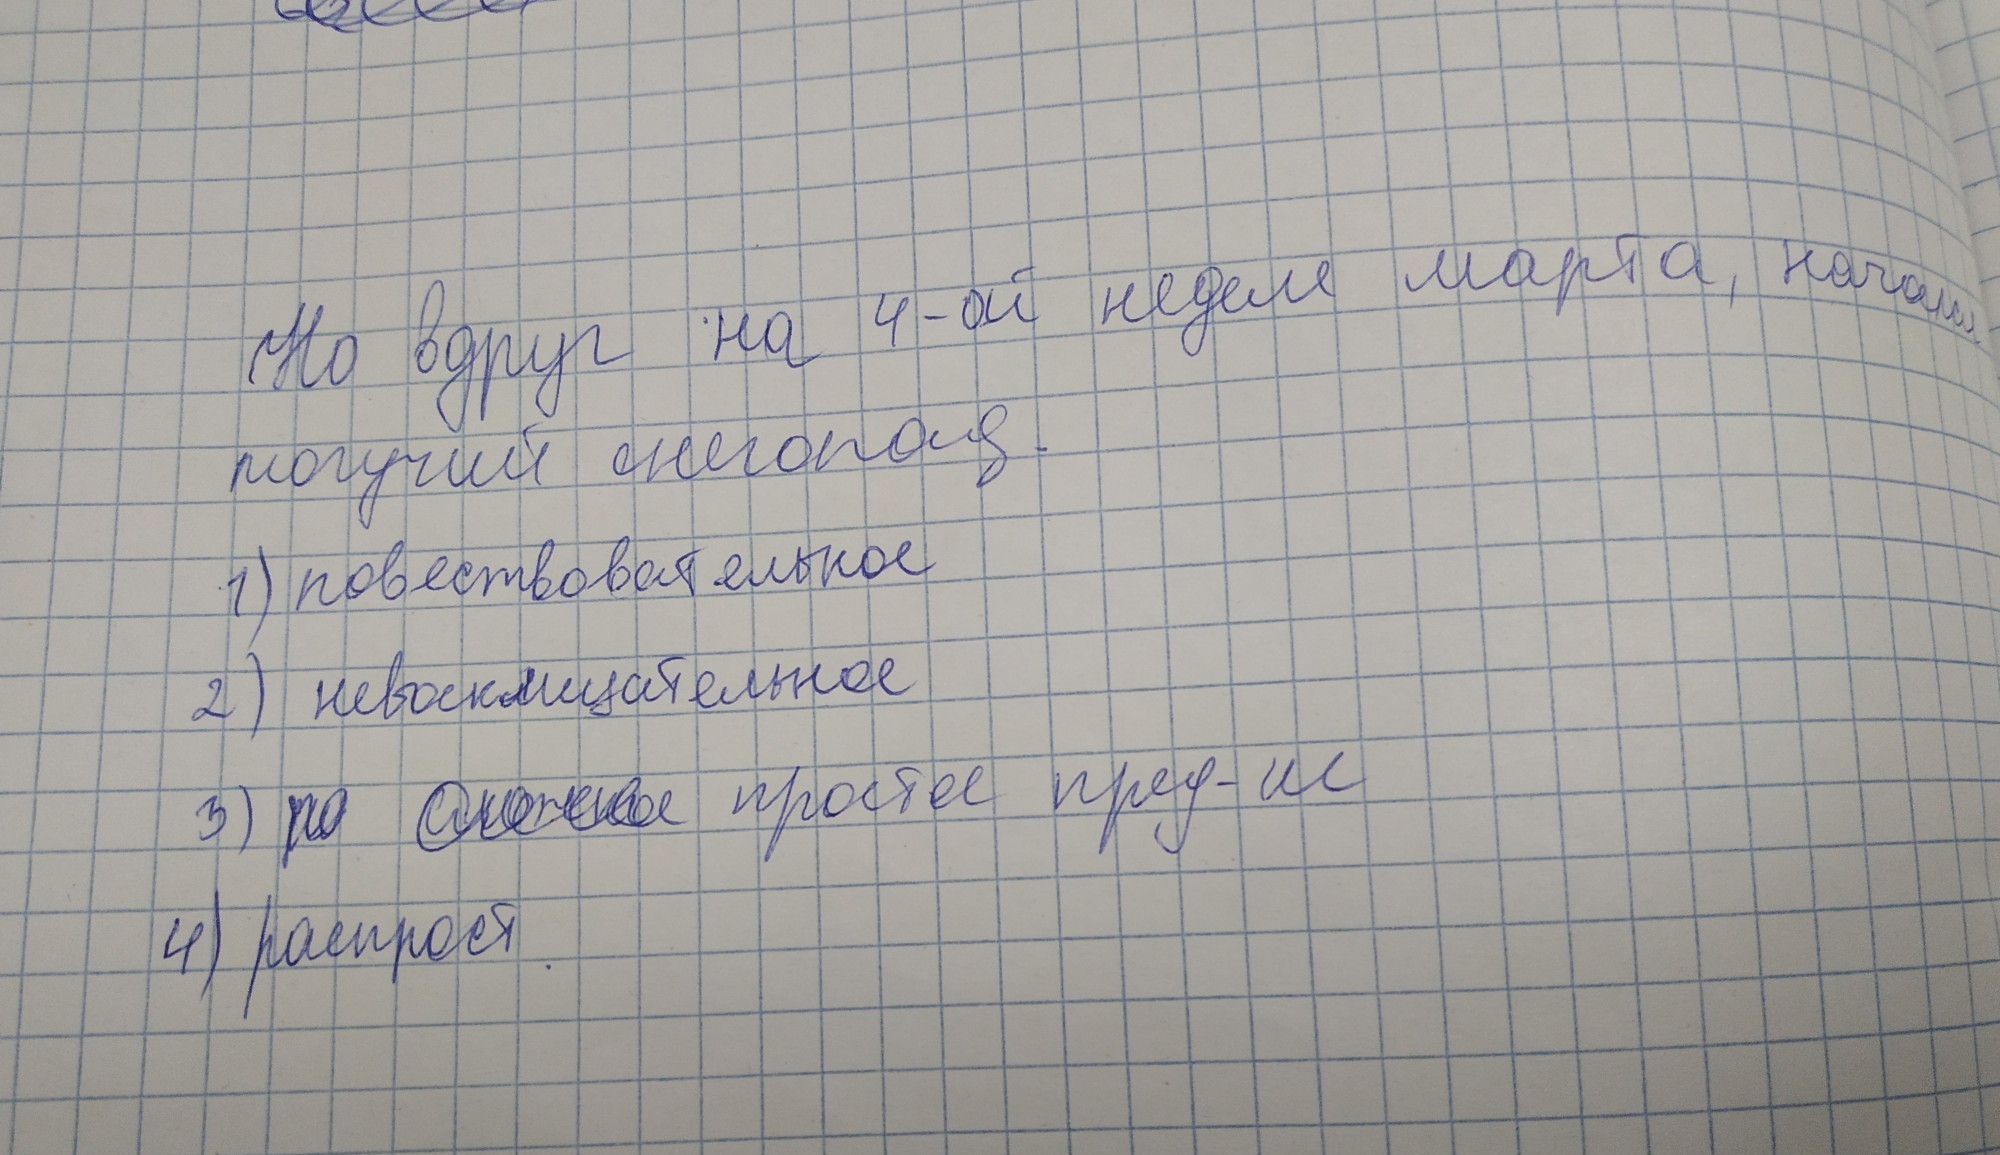 Но вдруг на 4-ой неделе марта, начался
могучий снегопад.
1) повествовательное
2) невосклицательное
3) по простое пред-ие
4) распрост.